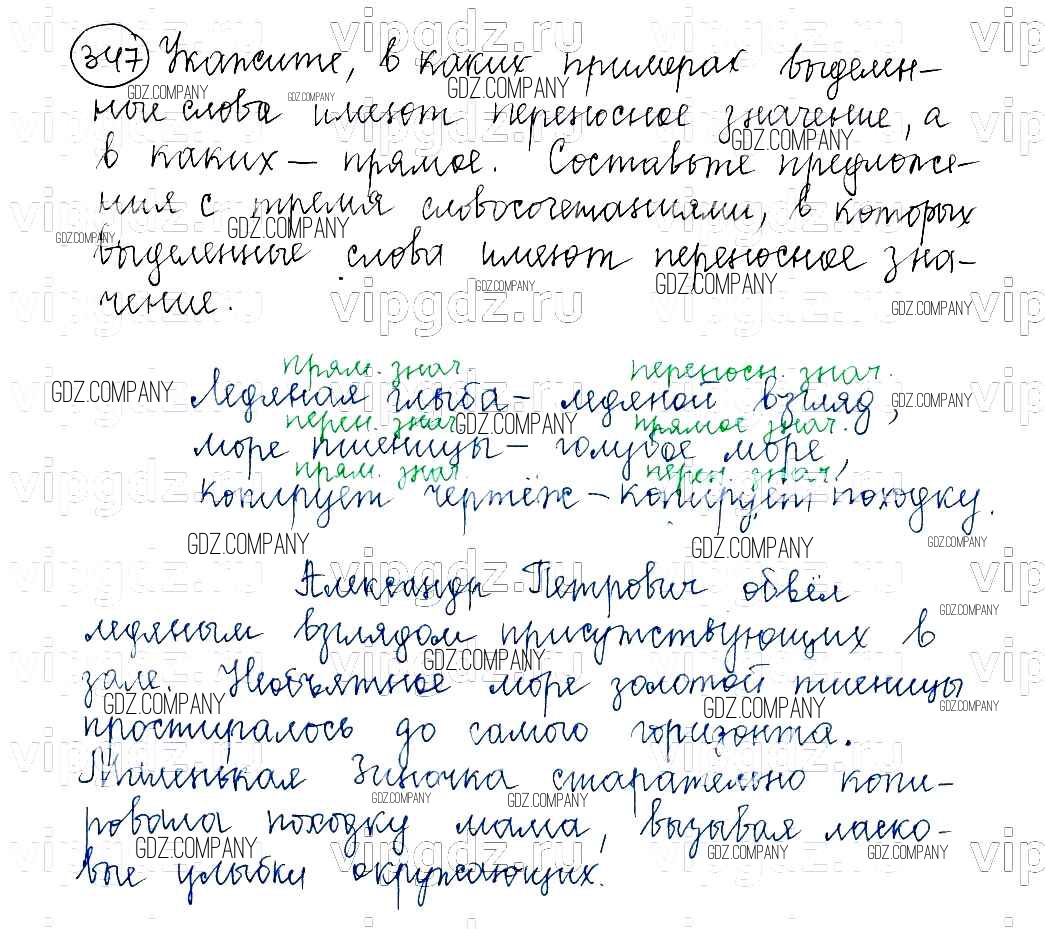 347 Укажите, в каких примерах выделен-
ные слова имеют переносное значение, а
в каких – прямое. Составьте предложе-
ния с тремя словосочетаниями, в которых
выделенные слова имеют переносное зна-
чение.
прям. знач. переносн. знач.
Ледяная глыба – ледяной взгляд,
перен. знач. прямое знач.
море пшеницы – голубое море,
прям. знач. перен. знач.
копирует чертёж – копирует походку.
Александр Петрович обвёл
ледяным взглядом присутствующих в
зале. Необъятное море золотой пшеницы
простиралось до самого горизонта.
Маленькая Зиночка старательно копи-
ровала походку мама, вызывая ласко-
вые улыбки окружающих.
GDZ.COMPANY
vipgdz.ru